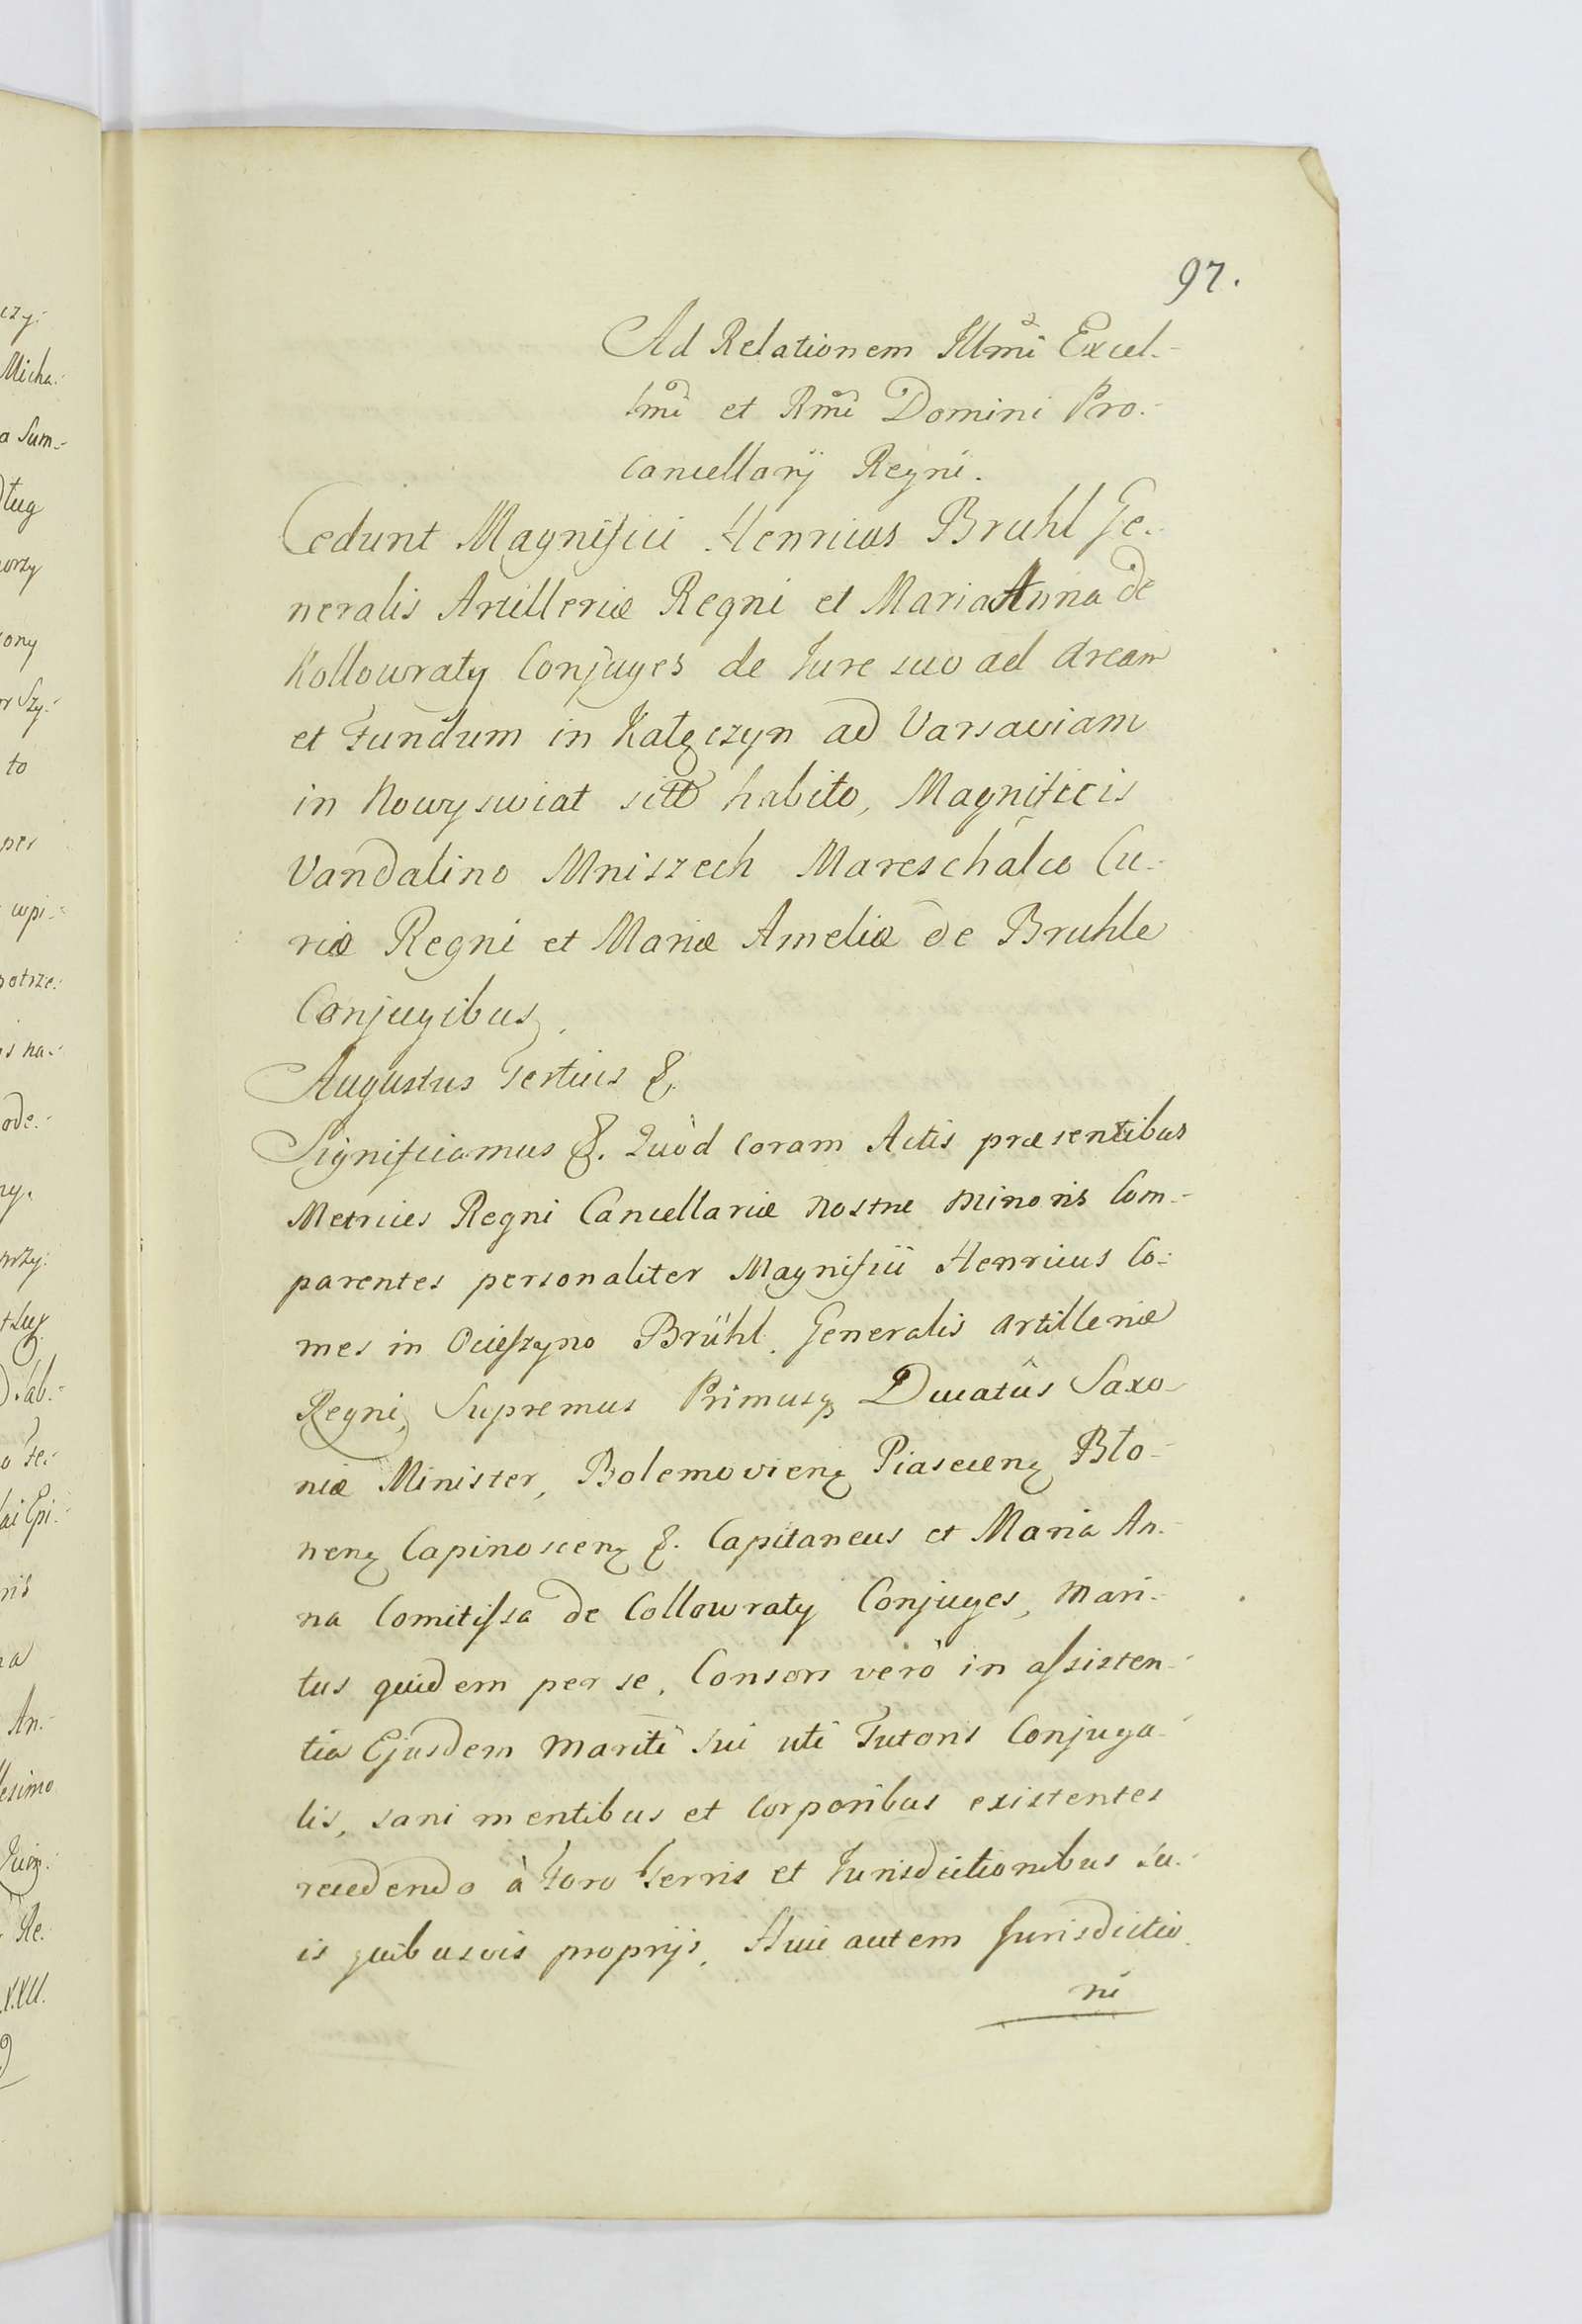 97.
Ad Relationem Illmi Excel-
lmi et Rmi Domini Pro-
cancellarij Regni.
Cedunt Magnifici Henricus Bruhl Ge-
neralis Artilleriæ Regni et Maria Anna de
Kollowraty Conjuges de Jure suo ad aream
et Fundum in Kałęczyn ad Varsaviam
in Nowyswiat sito habito, Magnificis
Vandalino Mniszech Mareschalco Cu-
riæ Regni et Mariæ Ameliæ de Bruhle
Conjugibus.
Augustus Tertius &.
Significamus &. Quòd coram Actis præsentibus
Metrices Regni Cancellariæ nostræ minoris Com-
parentes personaliter Magnifici Henricus Co-
mes in Ocieszyno Brühl. Generalis artilleriæ
Regni, Supremus Primusq Ducatûs Saxo-
niæ Minister, Bolemovieng Piaseceng Bło-
neng Capinosceng &. Capitaneus et Maria An-
na Comitissa de Collowraty Conjuges, mari-
tus quidem per se, Consors verò in assisten-
tia Ejusdem mariti sui uti Tutoris Conjuga-
lis, sani mentibus et corporibus existentes
recedendo à Foro Terris et Jurisdictionibus su-
is quibusvis proprijs, Huic autem Jurisdictio
ni
czy:
Micha-
a Sum-
ług
ony
to
per
is na-
ode-
ny.
An-
lesimo
Re.